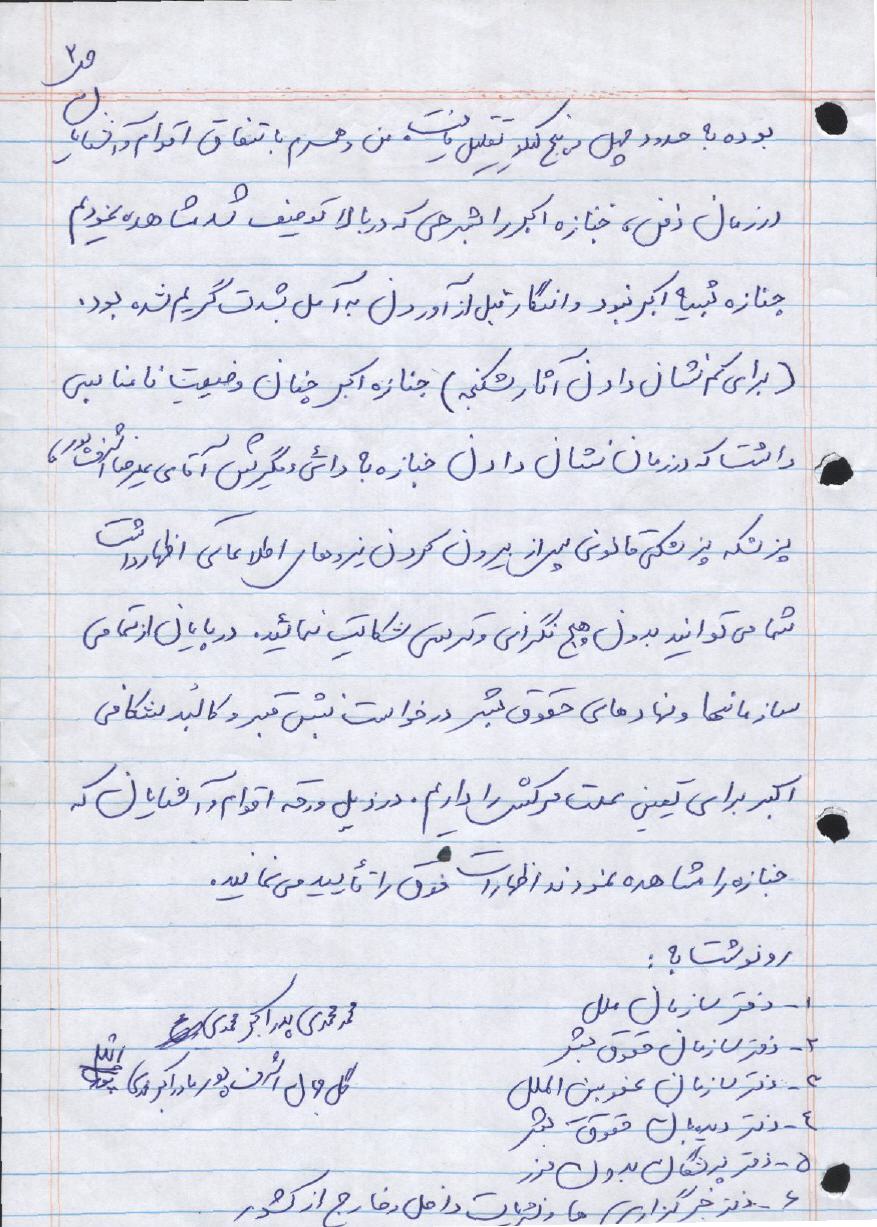 ص ۲
بوده به حدود چهل و پنج کیلو تقلیل یافت. من و همسرم با تفاق اقوام و آشنایان
در زمان دفن، جنازه اکبر را بشرحی که در بالا توصیف شد مشاهده نمودیم
جنازه شبیه اکبر نبود و انگار قبل از آوردن به آمل بشدت گریم شده بود.
(برای کم نشان دادن آثار شکنجه) جنازه اکبر چنان وضعیت نامناسبی
داشت که در زمان نشان دادن جنازه به دائی دیگرش آقای علیرضا اشرف پور،
پزشکه پزشکی قانونی پس از بیرون کردن نیروهای اطلاعاتی اظهار داشت
شما می توانید بدون هیچ نگرانی و ترسی شکایت نمائید. در پایان از تمامی
سازمانها و نهادهای حقوق بشر درخواست نبش قبر و کالبد شکافی
اکبر برای تعیین علت مرگش را داریم. در ذیل ورقه اقوام و آشنایان که
جنازه را مشاهده نمودند اظهارات فوق را تأیید می نمایند.
رونوشت به :
۱- دفتر سازمان ملل
محمد محمدی پدر اکبر محمدی
۲- دفتر سازمان حقوق بشر
گل جهان اشرف پور مادر اکبر محمدی
۳- دفتر سازمان عفو بین الملل
۴- دفتر دیدبان حقوق بشر
۵- دفتر پزشکان بدون مرز
۶- دفتر خبرگزاری ها و نشریات داخل و خارج از کشور